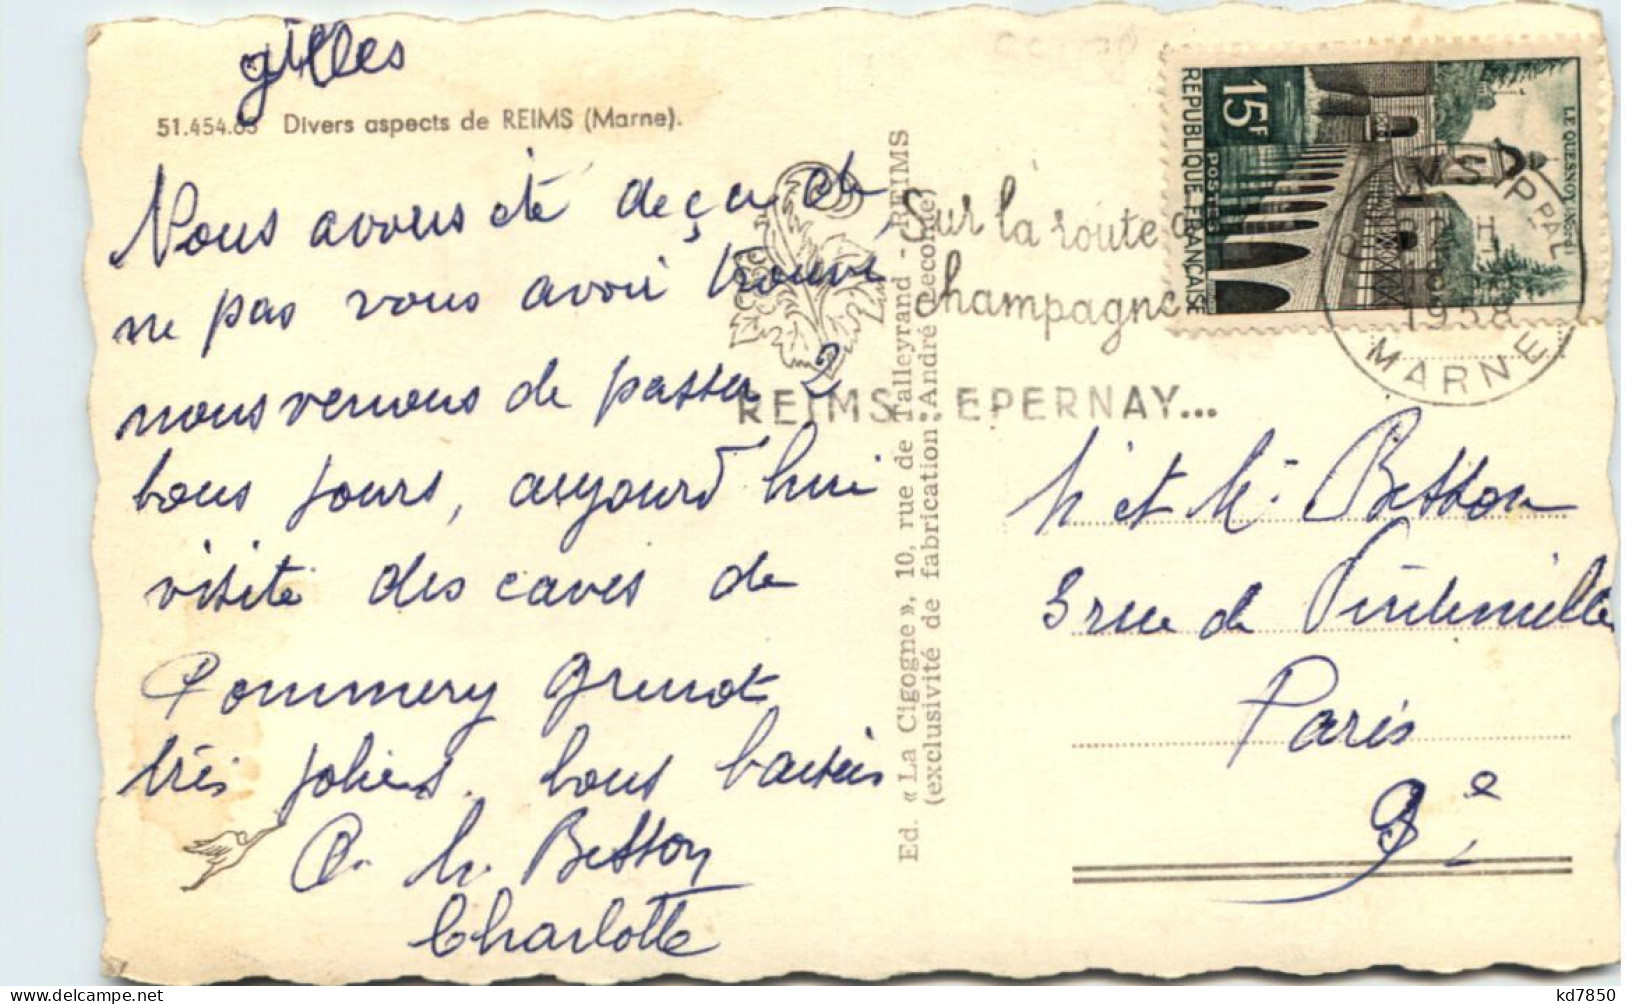 gilles
51.454.63 Divers aspects de REIMS (Marne).
Nous avons été deçu de
ne pas vous avoir trouvé
nous venons de passer 2
bons jours, aujourd'hui
visite des caves de
Pommery Grenot
très jolies. bons baisers
M. Besson
Charlotte
Ed. « La Cigogne », 10, rue de Talleyrand - REIMS
(exclusivité de fabrication : André Leconte)
Sur la route
champagne
REIMS EPERNAY...
15F
POSTES
REPUBLIQUE FRANÇAISE
LE QUESNOY (NORD)
PPAL
1958
MARNE
M et Mme Besson
3 rue de
Paris
9e
kd7850